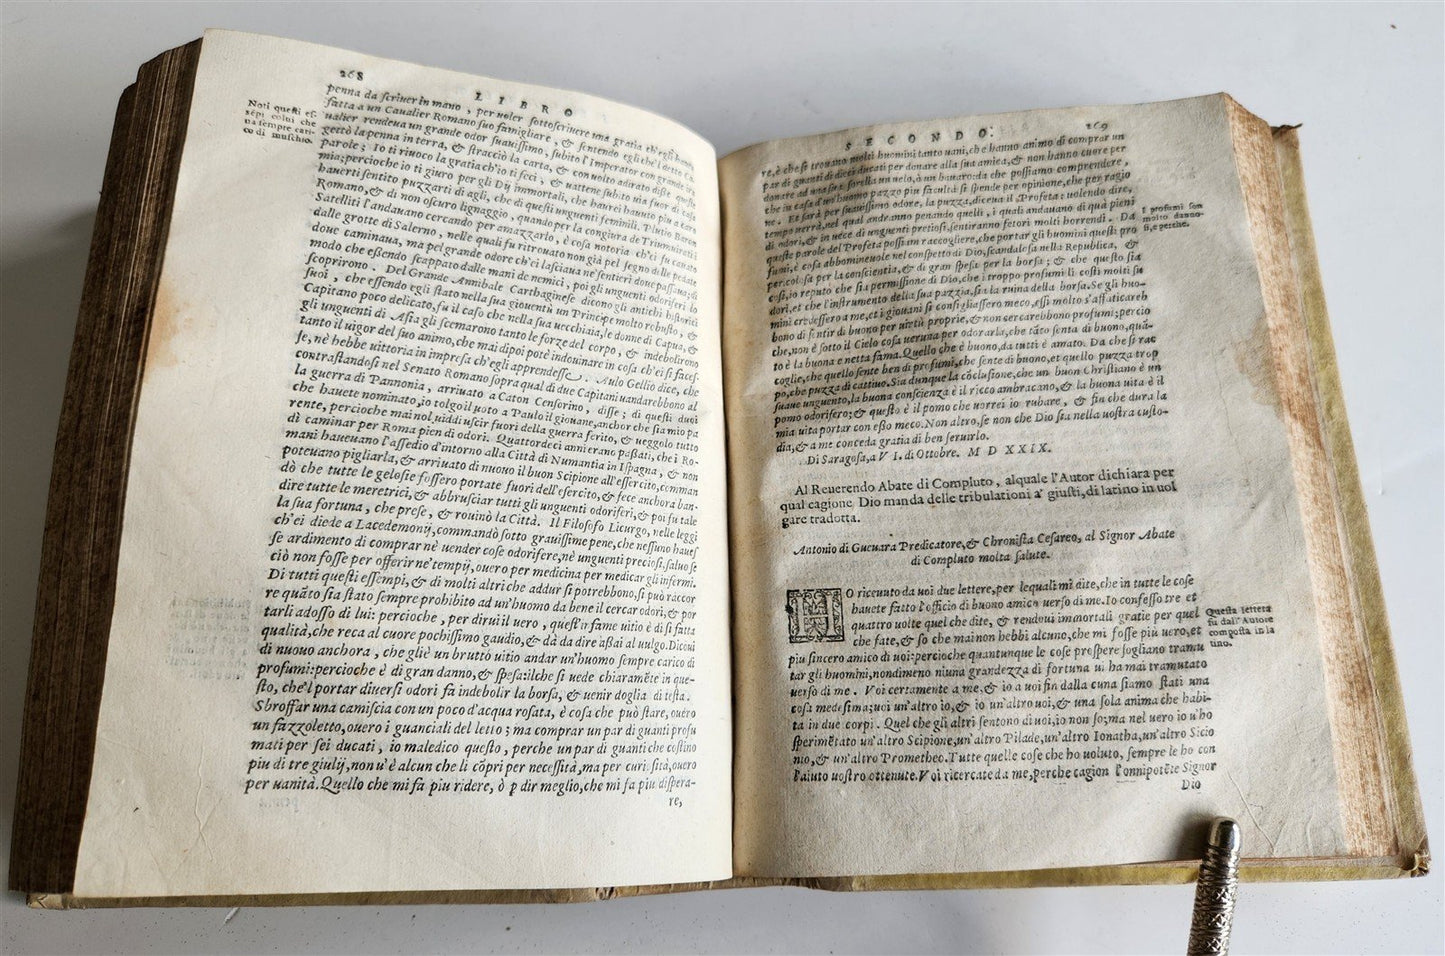 268
LIBRO
Noti questi es-
sépi colui che
va sempre cari-
co di muschio.
penna da scriver in mano, per voler sottoscriuere una gratia ch'egli hauea
fatta a un Caualier Romano suo famigliare, & sentendo egli che'l detto Ca
ualier rendeua un grande odor suauissimo, subito l'Imperator con grande ira
gettò la penna in terra, & stracciò la carta, & con uolto adirato disse queste
parole; Io ti riuoco la gratia ch'io ti feci, & uattene subito uia fuor di casa
mia; percioche io ti giuro per gli Dij immortali, che harei hauuto piu a caro
hauerti sentito puzzarti di agli, che di questi unguenti feminili. Plutio
Romano, & di non oscuro lignaggio, quando per la congiura de Triumuirati i
Satelliti l'andauano cercando per amazzarlo, è cosa notoria ch'ei fu cauato
dalle grotte di Salerno, nelle quali fu ritrouato non già pel segno delle pedate
doue caminaua, ma pel grande odore ch'ei lasciaua ne' sentieri doue passaua; di
modo che essendo scappato dalle mani de nemici, poi gli unguenti odoriferi lo
scoprirono. Del Grande Annibale Carthaginese dicono gli antichi historici
suoi, che essendo egli stato nella sua giouentù un Principe molto robusto, &
Capitano poco delicato, fu il caso che nella sua uecchiaia, le donne di Capua, &
gli unguenti di Asia gli scemarono tanto le forze del corpo, & indebolirono
tanto il uigor del suo animo, che mai dipoi potè indouinare in cosa ch'ei si faces-
se, nè hebbe uittoria in impresa ch'egli apprendesse. Aulo Gellio dice, che
contrastandosi nel Senato Romano sopra qual di due Capitani uandarebbono al
la guerra di Pannonia, arriuato a Caton Censorino, disse; di questi duoi
che hauete nominato, io tolgo il uoto a Paulo il giouane, anchor che sia mio pa
rente, percioche mai nol uiddi uscir fuori della guerra ferito, & ueggolo tutto
dì caminar per Roma pien di odori. Quattordeci anni erano passati, che i Ro-
mani haueuano l'assedio d'intorno alla Città di Numantia in Ispagna, & non
poteuano pigliarla, & arriuato di nuouo il buon Scipione all'essercito, comman
dò che tutte le gelosie fossero portate fuori dell'esercito, & fece anchora ban-
dire tutte le meretrici, & abbrusciar tutti gli unguenti odoriferi, & poi fu tale
la sua fortuna, che prese, & rouinò la Città. Il Filosofo Licurgo, nelle leggi
ch'ei diede a Lacedemonij, commandò sotto grauissime pene, che nessuno haues
se ardimento di comprar nè uender cose odorifere, nè unguenti preciosi, saluo se
ciò non fosse per offerir ne' tempij, ouero per medicina per medicar gli infermi.
Di tutti questi essempi, & di molti altri che addur si potrebbono, si può raccor
re quãto sia stato sempre prohibito ad un'huomo da bene il cercar odori, & por
tarli adosso di lui: percioche, per dirui il uero, quest'infame uitio è di si fatta
qualità, che reca al cuore pochissimo gaudio, & dà da dire assai al uulgo. Dicoui
di nuouo anchora, che gliè un brutto uitio andar un'huomo sempre carico di
profumi: percioche è di gran danno, & spesa: ilche si uede chiaramēte in que-
sto, che'l portar diuersi odori fa indebolir la borsa, & uenir doglia di testa.
Sbroffar una camiscia con un poco d'acqua rosata, è cosa che può stare, ouero
un fazzoletto, ouero i guanciali del letto; ma comprar un par di guanti profu
mati per sei ducati, io maledico questo, perche un par di guanti che costino
piu di tre giulij, non u'è alcun che li cōpri per necessità, ma per curiosità, ouero
per uanità. Quello che mi fa piu ridere, ò p dir meglio, che mi fa piu dispera-
re,
SECONDO.
269
re, è che si trouano molti huomini tanto uani, che hanno animo di comprar un
par di guanti di dieci ducati per donare alla sua amica, & non hanno cuore per
donare ad una sua sorella un uelo, ò un hauaro: da che possiamo comprendere,
che in casa d'un huomo pazzo piu facultà si spende per opinione, che per ragio
ne. Et sarà per suauissimo odore, la puzza, diceua il Profeta: uolendo dire,
tempo uerrà, nel qual andranno penando quelli, i quali andauano di quà pieni
di odori, & in uece di unguenti pretiosi, sentiranno fetori molti horrendi. Da
queste parole del Profeta possiam raccogliere, che portar gli huomini questi pro
fumi, è cosa abbomineuole nel conspetto di Dio, scandalosa nella Republica, &
pericolosa per la conscientia, & di gran spesa per la borsa; & che questo sia
cosi, io reputo che sia permissione di Dio, che i troppo profumi li costi molti su
dori, et che l'instrumento della sua pazzia, sia la ruina della borsa. Se gli huo-
mini credessero a me, et i giouani si consigliassero meco, essi molto s'affaticareb
bono di sentir di buono per uirtù proprie, & non cercarebbono profumi; percio
che, non è sotto il Cielo cosa ueruna per odorarla, che tãto senta di buono, quã-
to è la buona e netta fama. Quello che è buono, da tutti è amato. Da che si rac
coglie, che quello sente ben di profumi, che sente di buono, et quello puzza trop
po, che puzza di cattiuo. Sia dunque la cōclusione, che un buon Christiano è un
suaue unguento, la buona conscienza è il ricco ambracano, & la buona uita è il
pomo odorifero; & questo è il pomo che uorrei io rubare, & fin che dura la
mia uita portar con esso meco. Non altro, se non che Dio sia nella uostra custo-
dia, & a me conceda gratia di ben seruirlo.
Di Saragosa, a VI. di Ottobre. M D XXIX.
I profumi son
molto danno-
si, e perche.
Al Reuerendo Abate di Compluto, alquale l'Autor dichiara per
qual cagione Dio manda delle tribulationi a' giusti, di latino in uol
gare tradotta.
Antonio di Gueuara Predicatore, & Chronista Cesareo, al Signor Abate
di Compluto molta salute.
HO riceuuto da uoi due lettere, per lequali mi dite, che in tutte le cose
hauete fatto l'officio di buono amico uerso di me. Io confesso tre et
quattro uolte quel che dite, & rendoui immortali gratie per quel
che fate, & so che mai non hebbi alcuno, che mi fosse più uero, et
piu sincero amico di uoi: percioche quantunque le cose prospere sogliano tramu
tar gli huomini, nondimeno niuna grandezza di fortuna ui ha mai tramutato
uerso di me. Voi certamente a me, & io a uoi fin dalla cuna siamo stati una
cosa medesima; uoi un'altro io, & io un'altro uoi, & una sola anima che habi-
ta in due corpi. Quel che gli altri sentono di uoi, io non so; ma nel uero io u'ho
sperimētato un'altro Scipione, un'altro Pilade, un'altro Ionatha, un'altro Sicio
nio, & un'altro Prometheo. Tutte quelle cose che ho uoluto, sempre le ho con
l'aiuto uostro ottenute. Voi ricercate da me, perche cagion l'onnipotēte Signor
Dio
Questa lettera
fu dall'Autore
composta in la
tino.